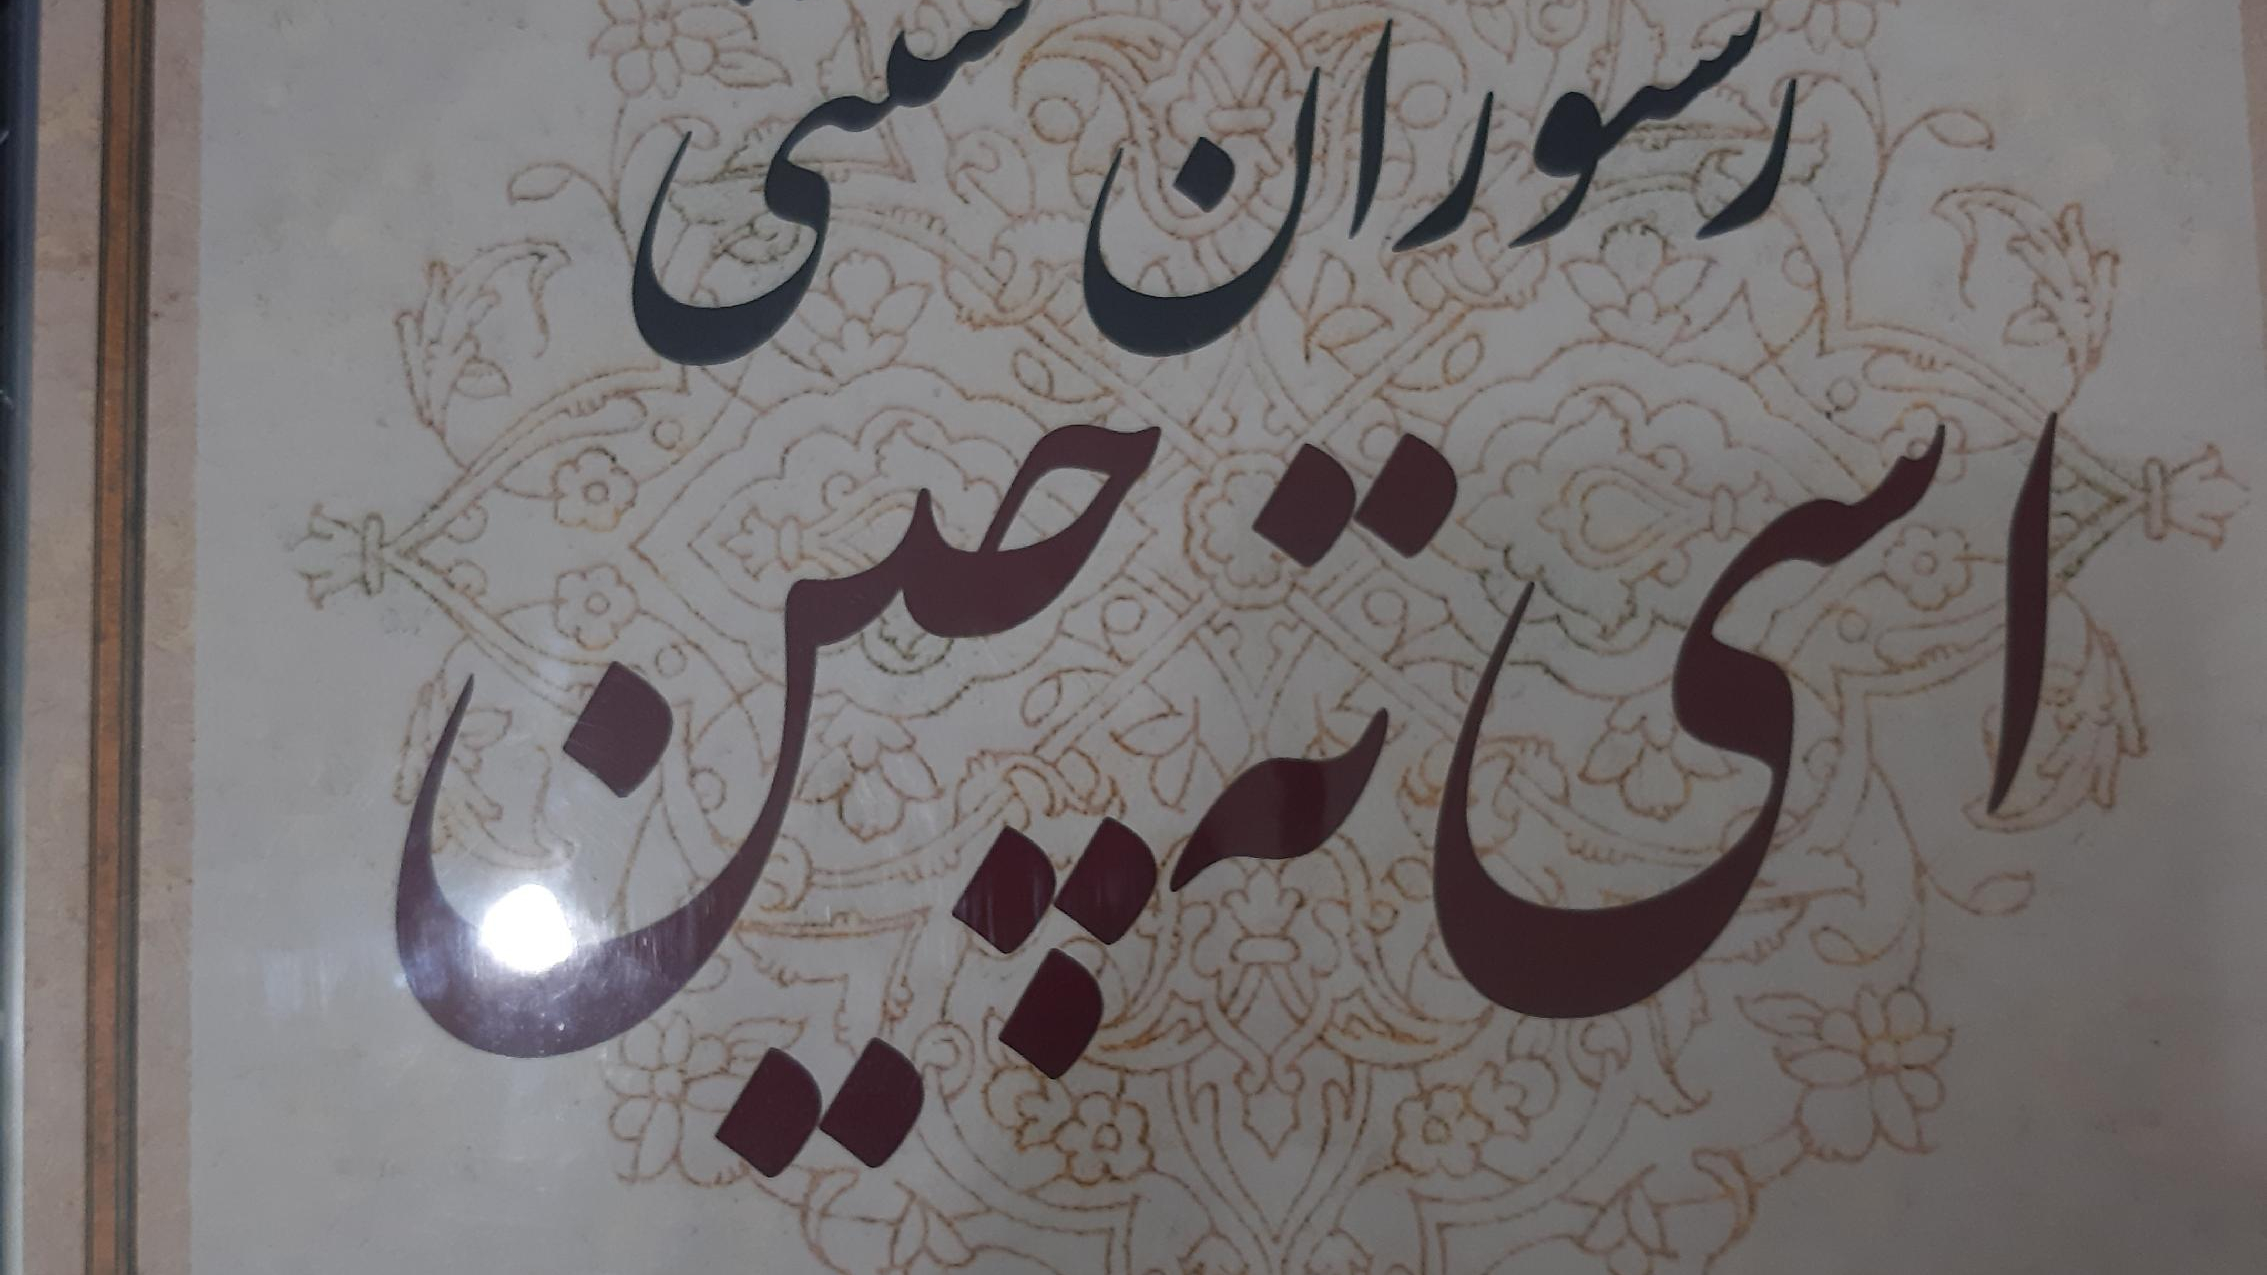 رستوران سنتی
اسی ته چین